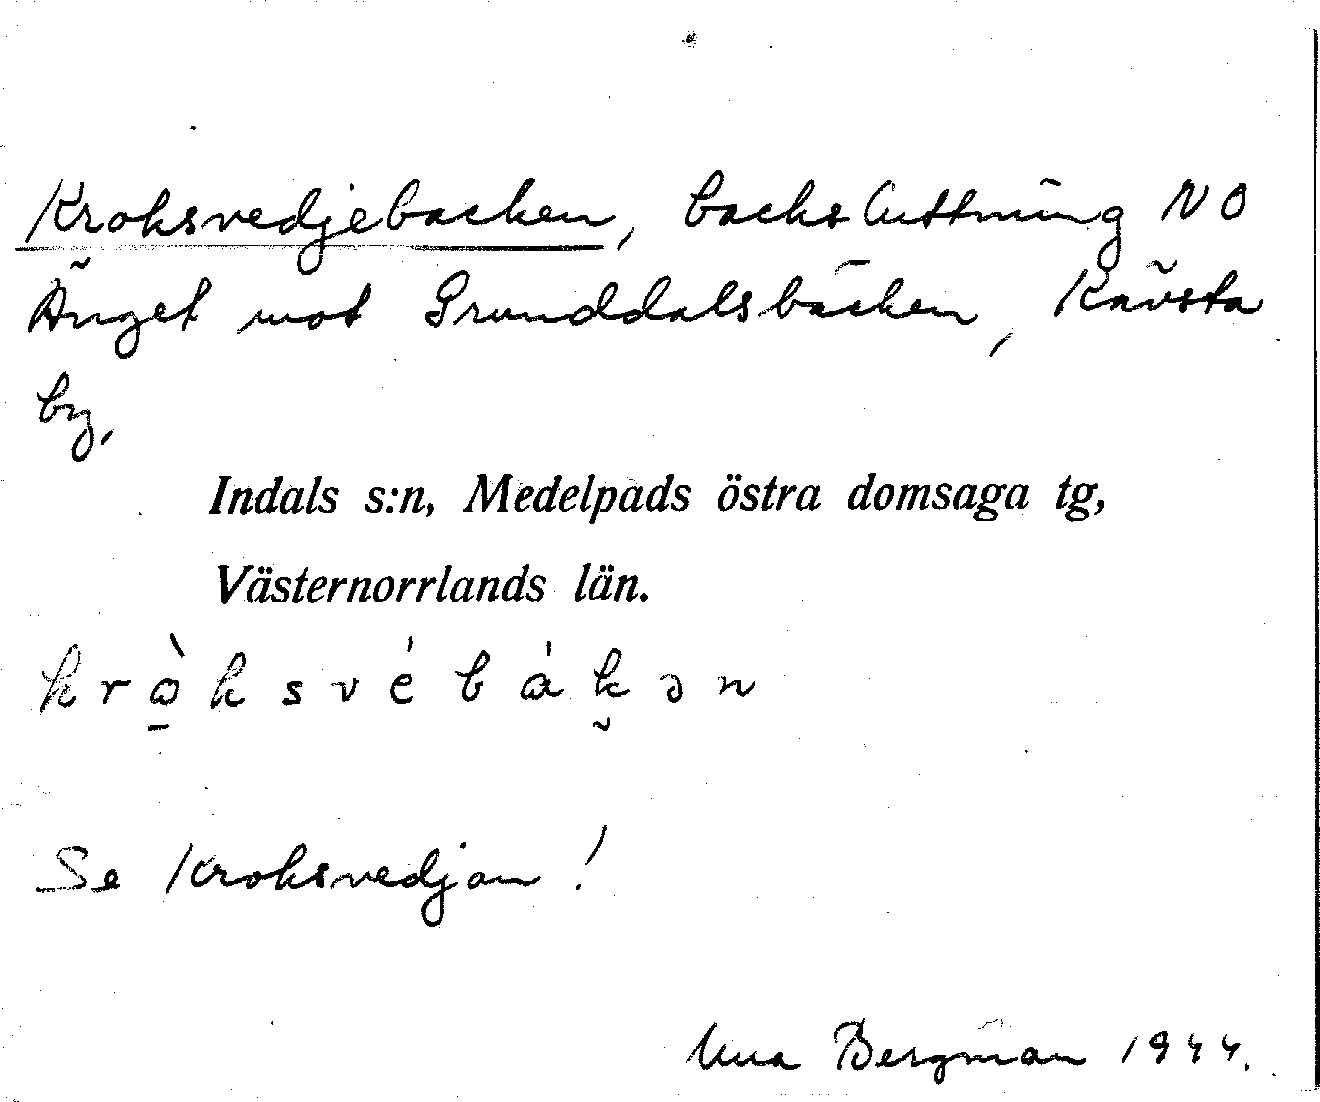 Kroksvedjebacken, backsluttning NO
Änget mot Grunddalsbäcken, Kävsta
by.
Indals s:n, Medelpads östra domsaga tg,
Västernorrlands län.
krò̱ksvébák̮ən
Se Kroksvedjan!
Una Bergman 1944.